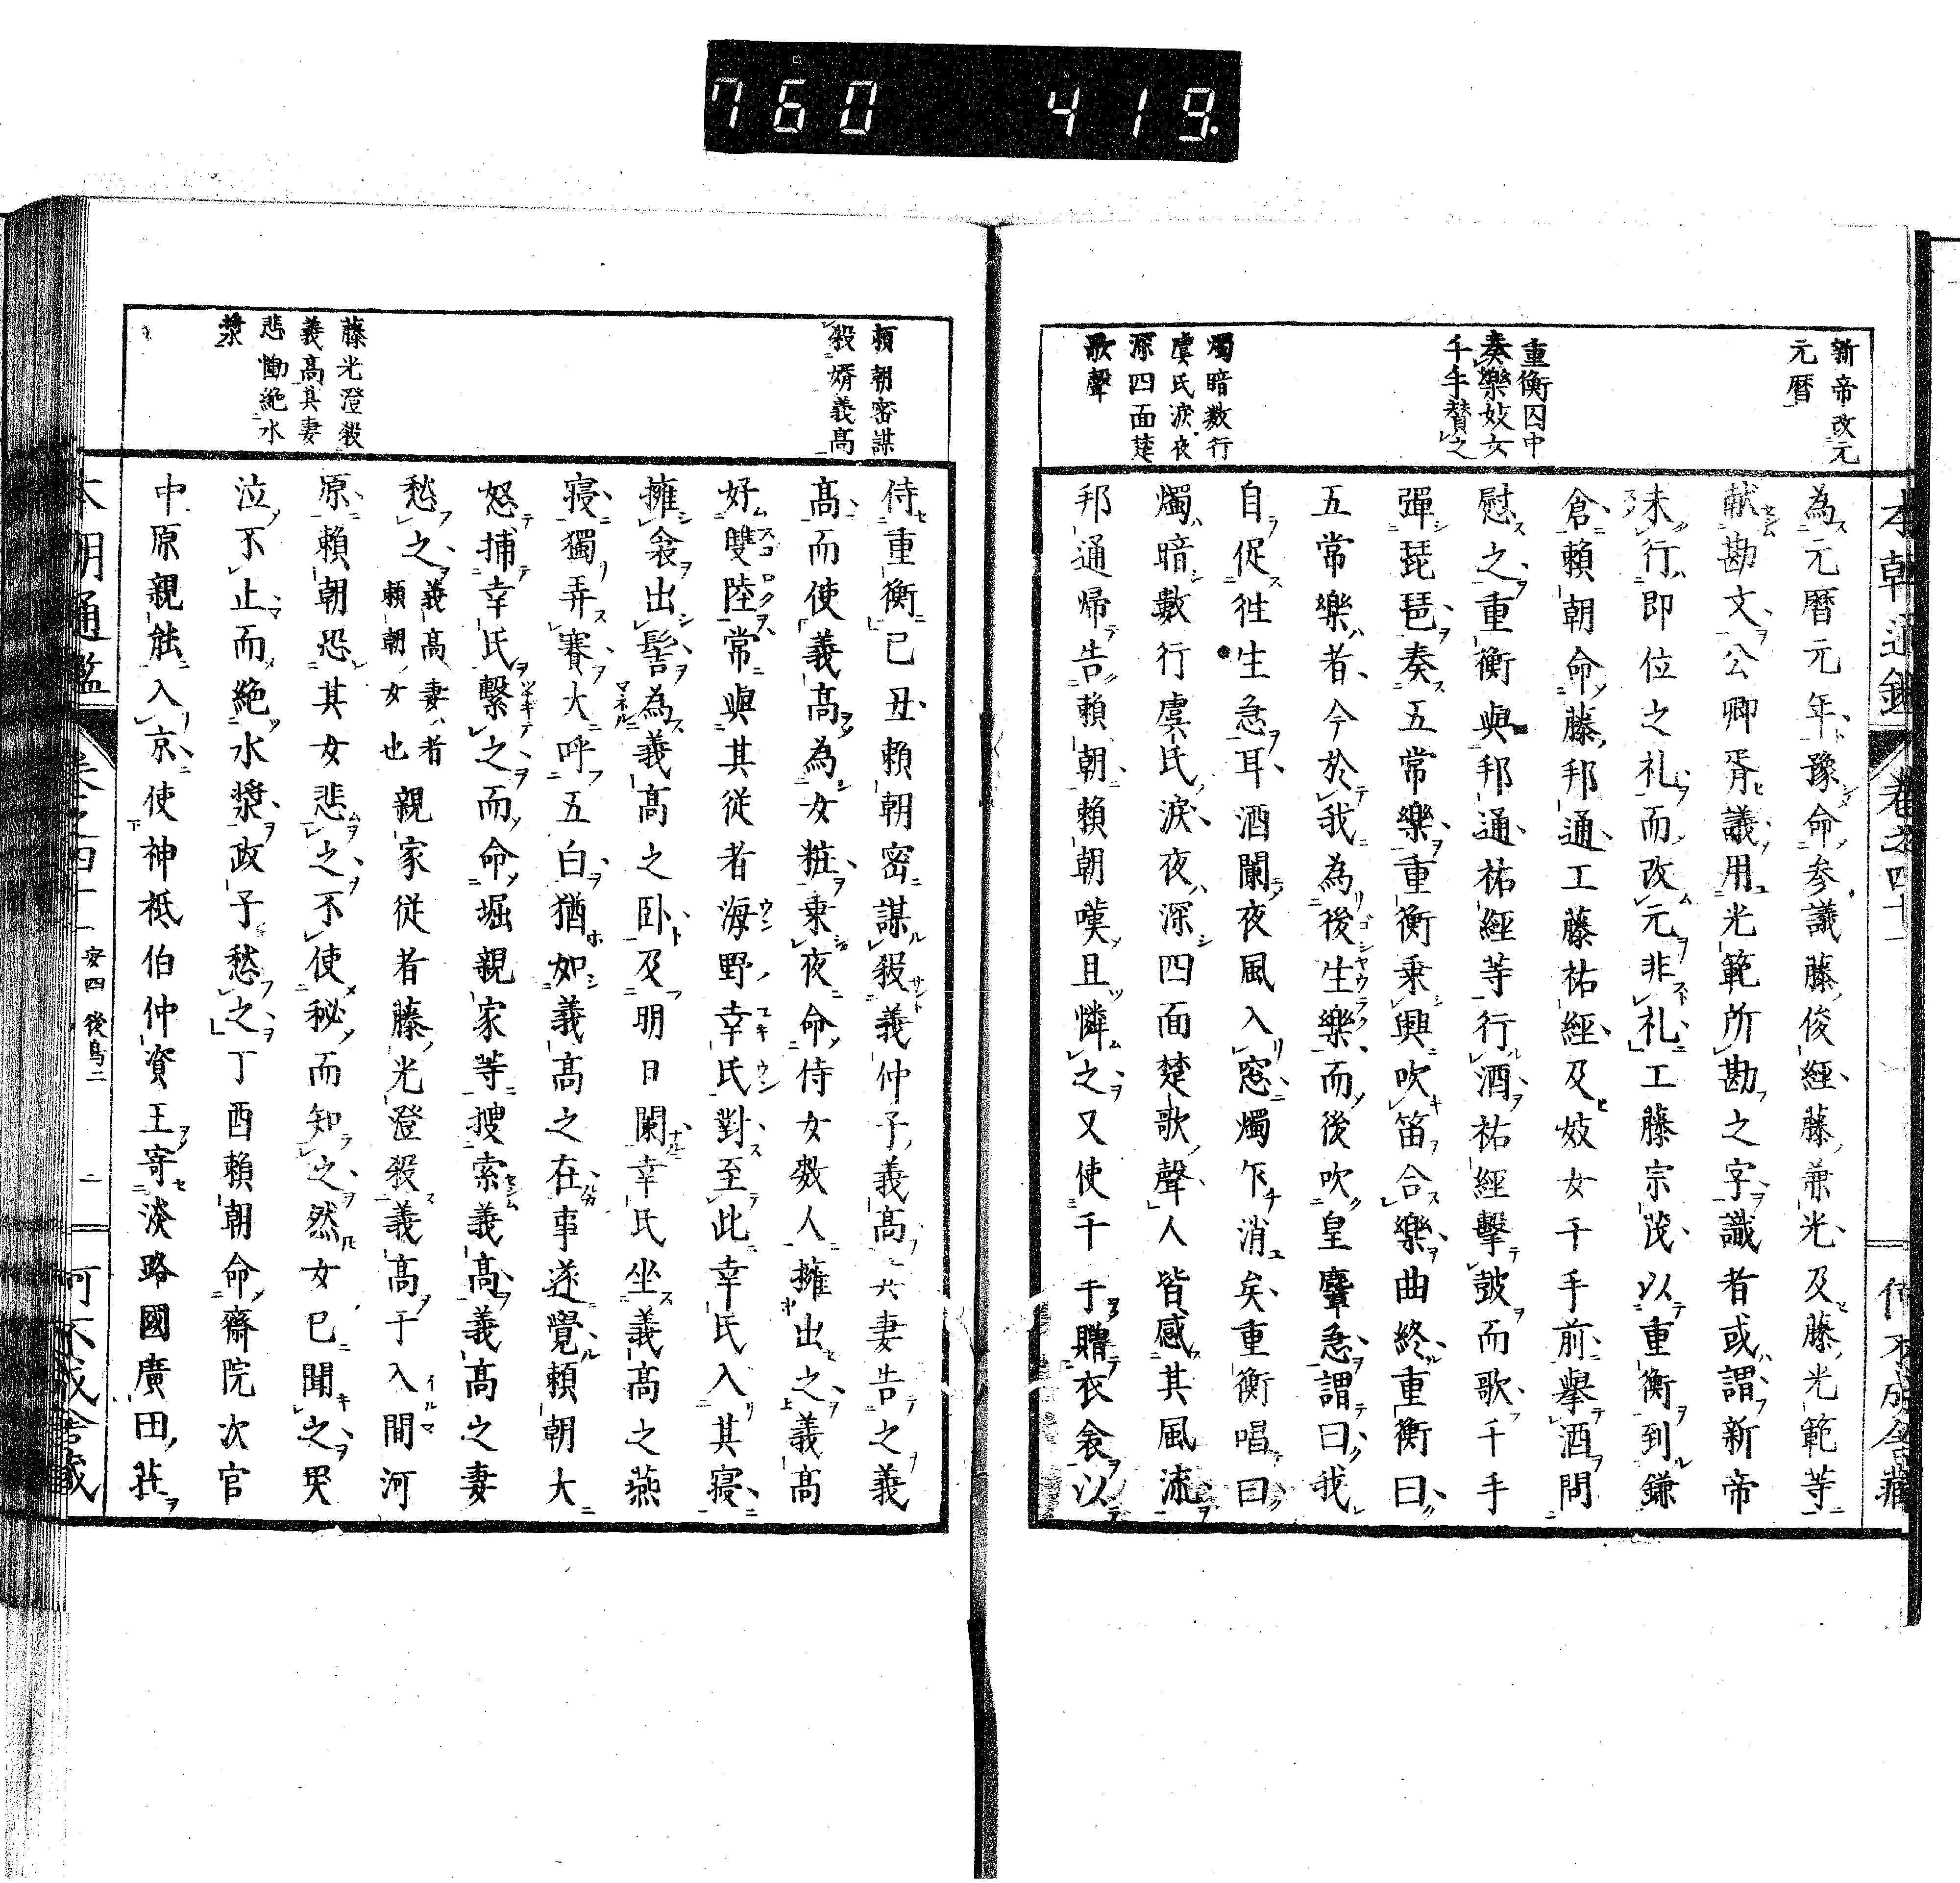 760 419
新帝改元
元暦
重衡囚中
奏樂妓女
千手賛之
燭暗数行
虞氏涙夜
深四面楚
歌聲
本朝通鑑 卷之四十一
為元暦元年豫命参議藤俊經藤兼光及藤光範等
献勘文公卿胥議用光範所勘之字識者或謂新帝
未行即位之礼而改元非礼工藤宗茂以重衡到鎌
倉頼朝命藤邦通工藤祐經及妓女千手前擧酒問
慰之重衡與邦通祐經等行酒祐經擊皷而歌千手
彈琵琶奏五常樂重衡乗興吹笛合樂曲終重衡曰
五常樂者今於我為後生樂而後吹皇麞急謂曰我
自促徃生急耳酒闌夜風入窓燭乍消矣重衡唱曰
燭暗數行虞氏淚夜深四面楚歌聲人皆感其風流
邦通帰告頼朝頼朝嘆且憐之又使千手贈衣衾以
頼朝密謀
殺婿義髙
藤光澄殺
義髙其妻
悲慟絶水
漿
侍重衡已丑頼朝密謀殺義仲子義髙其妻告之義
髙而使義髙為女粧乗夜命侍女数人擁出之義髙
好雙陸常與其従者海野幸氏對至此幸氏入其寝
擁衾出髻為義髙之卧及明日闌幸氏坐義髙之燕
寝獨弄賽大呼五白猶如義髙之在事遂覺頼朝大
怒捕幸氏繋之而命堀親家等捜索義髙義髙之妻
愁之義髙妻者頼朝女也親家従者藤光澄殺義髙于入間河
原頼朝恐其女悲之不使秘而知之然女已聞之哭
泣不止而絶水漿政子愁之丁酉頼朝命齋院次官
中原親能入京使神祇伯仲資王寄淡路國廣田莊
本朝通鑑 卷之四十一 安四 後鳥二 二